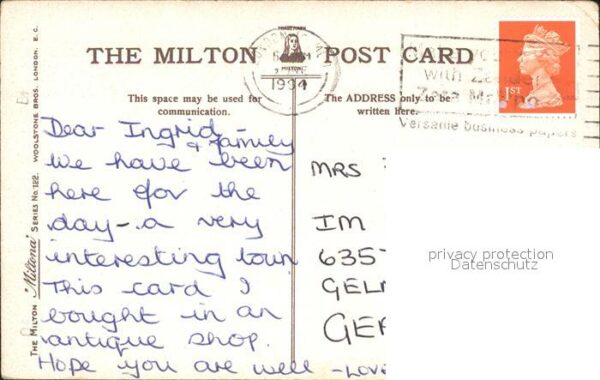 THE MILTON POST CARD
MILTON
1994
1ST
with
Versatile business papers
This space may be used for
communication.
The ADDRESS only to be
written here.
Dear Ingrid
& family
We have been
here for the
day - a very
interesting town
This card I
bought in an
antique shop.
Hope you are well - Love
MRS
IM
635
GEL
GER
privacy protection
Datenschutz
THE MILTON "Miltona" SERIES No. 122. WOOLSTONE BROS. LONDON. E. C.